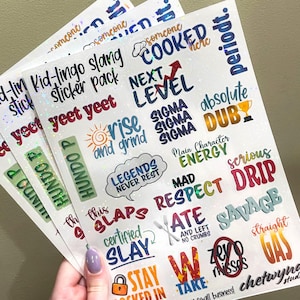 someone
COOKED
here
periodt.
Kid-lingo slang
sticker pack
NEXT
LEVEL
yeet yeet
SIGMA
SIGMA
SIGMA
absolute
DUB
rise
and grind
Main Character
ENERGY
HUNDO P
LEGENDS
NEVER REST
serious
DRIP
MAD
RESPECT
this
SLAPS
ATE
AND LEFT
NO CRUMBS
SAVAGE
certified
SLAY
straight
GAS
W
TAKE
STAY
LOCKED IN
small business!
chetwynd
someone
Kid-lingo slang
sticker pack
yeet yeet
HUNDO P
someone
HUNDO P